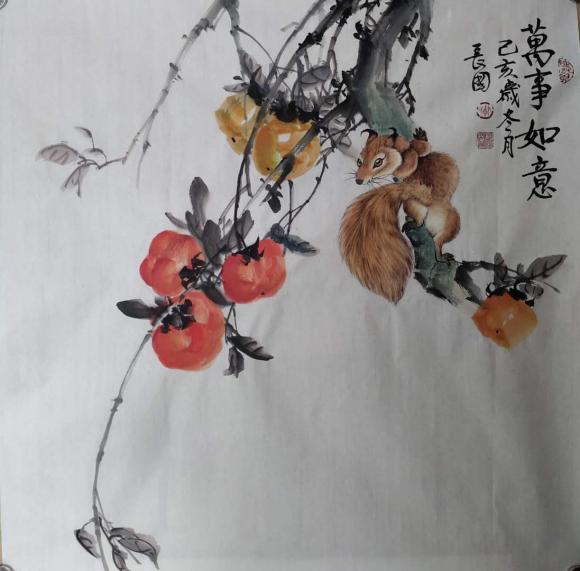 萬事如意
己亥歲冬月
長國